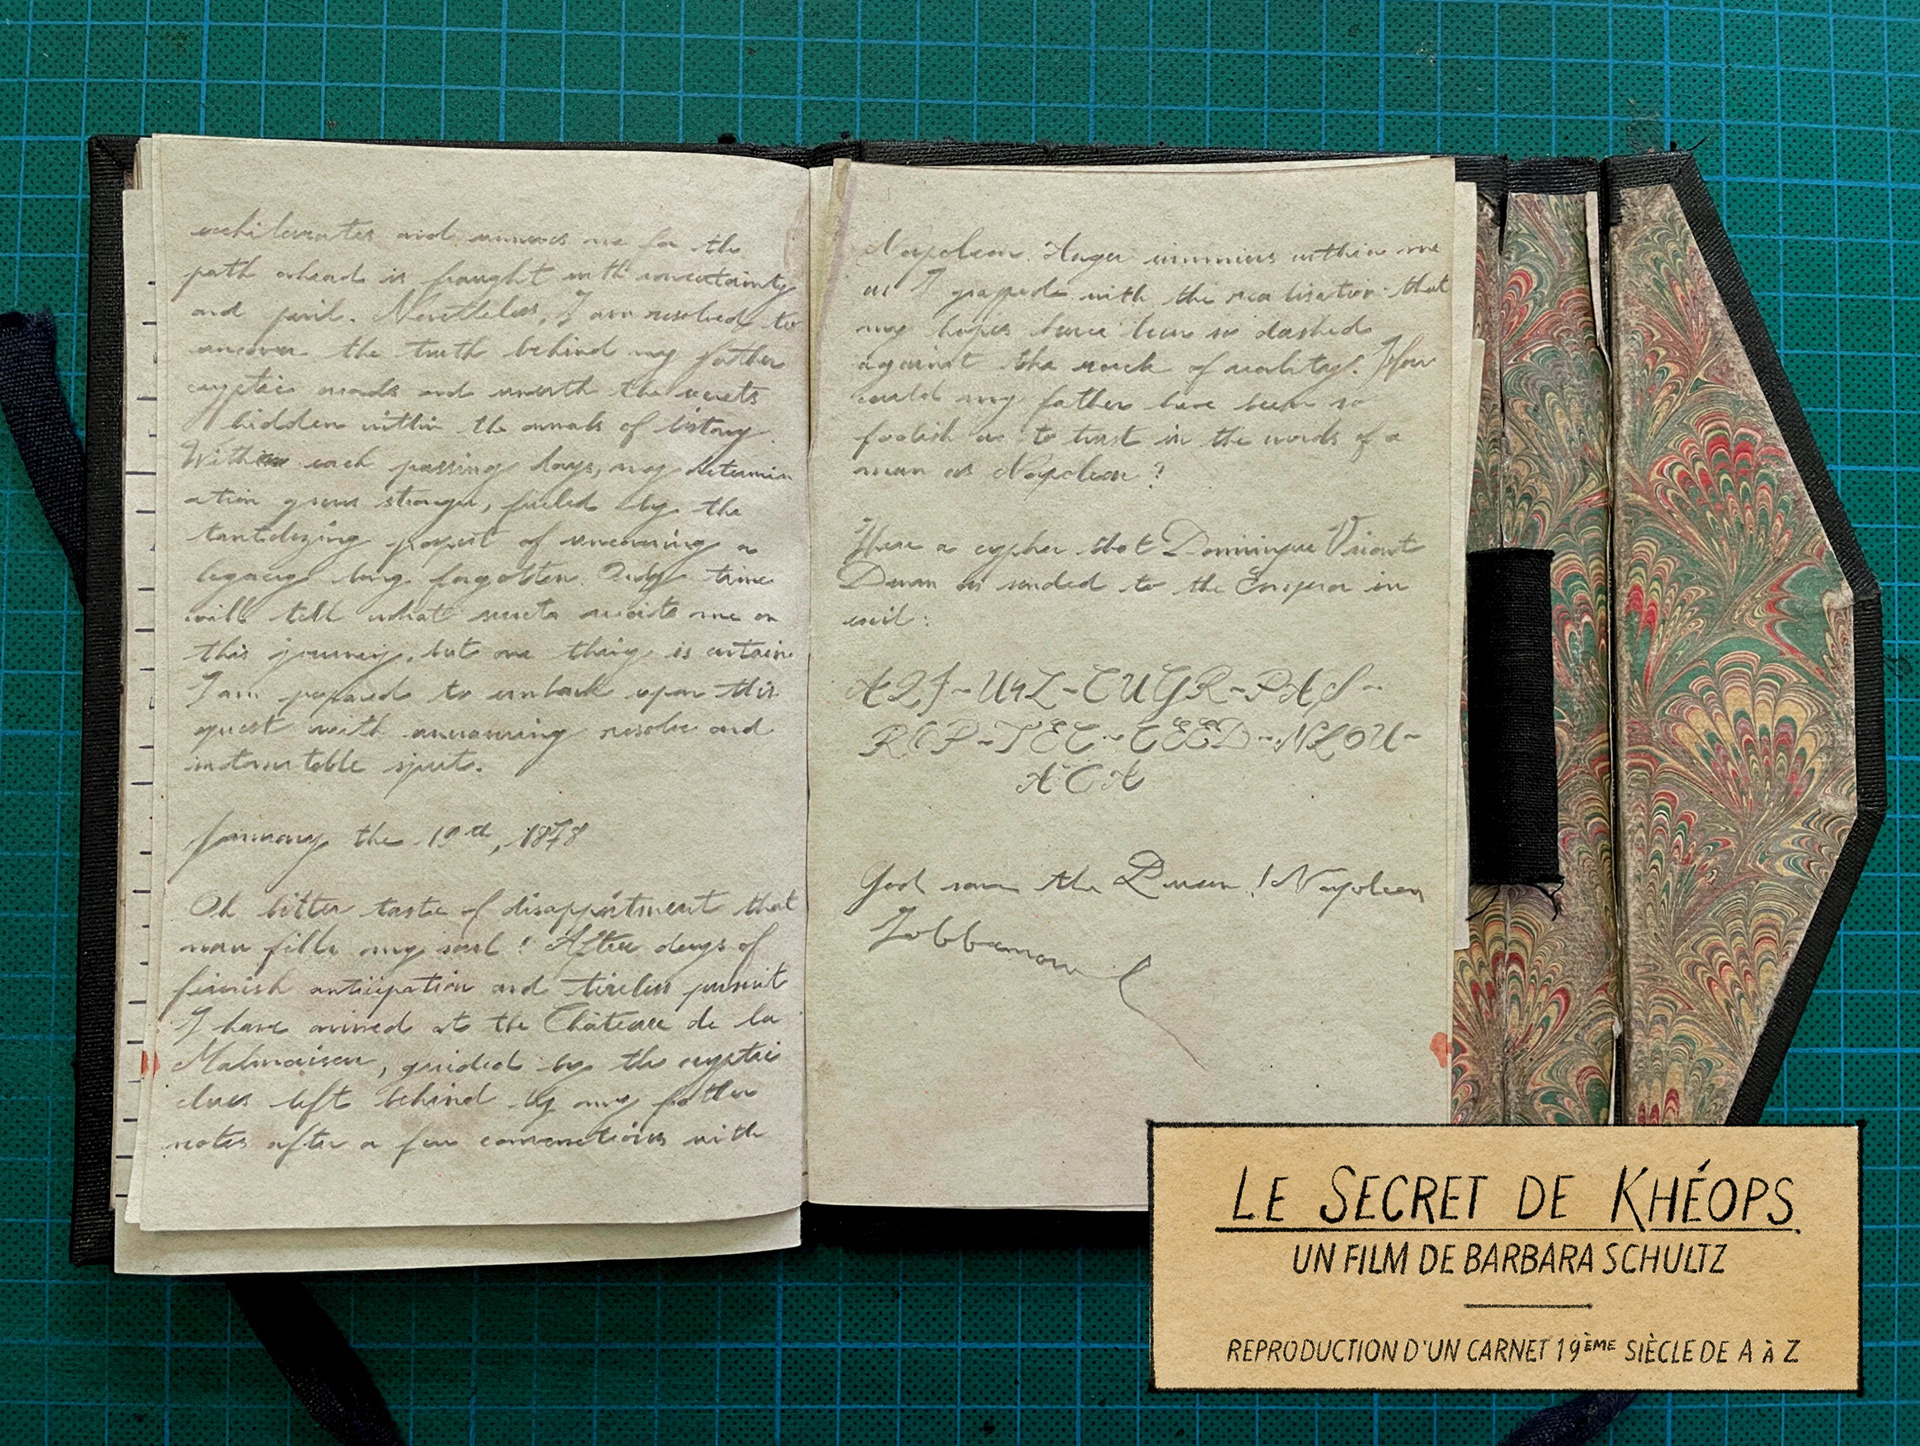 and me for the
path ahead is fraught with uncertainty
and peril. Nevertheless, I am resolved to
uncover the truth behind my father
cryptic words and unearth the secrets
hidden within the annals of history.
each passing days, my determin
ation grows stronger, fueled by the
tantalizing of uncovering a
legacy long forgotten. Only time
will tell what secrets awaits me on
this journey, but one thing is certain
I am prepared to embark upon this
quest with unwavering resolve and
spirit.
January the 19th, 1878
Oh bitter taste of disappointment that
now fills my soul! After days of
anticipation and tireless pursuit
I have arrived at the Château de la
Malmaison, guided by the cryptic
clues left behind by my father
notes after a few with
Napoleon. Anger within me
as I with the realisation that
my hopes have been so dashed
against the rock of reality! How
could my father have been so
foolish as to trust in the words of a
man as Napoleon?
Here a cypher that Dominique Vivant
Denon as sended to the Emperor in
exil:
U4Z-CUGR-PAS-
-TEC-CEED-NLOU-
ACA
God save the Queen! Napoleon
LE SECRET DE KHÉOPS
UN FILM DE BARBARA SCHULTZ
REPRODUCTION D'UN CARNET 19ÈME SIÈCLE DE A À Z